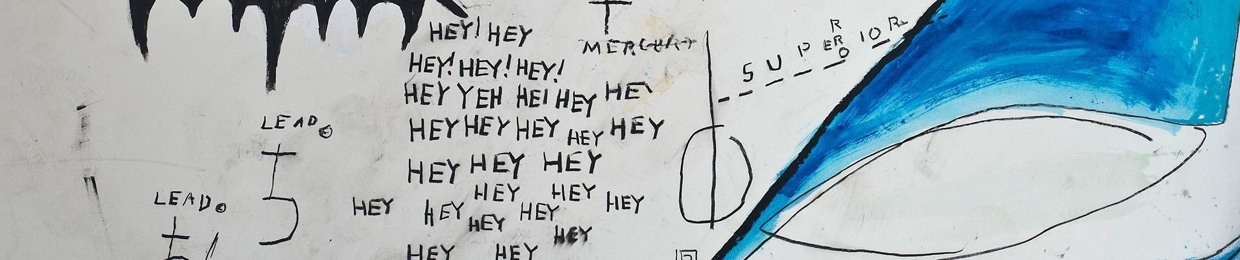 HEY! HEY
MERCURY
HEY! HEY! HEY!
SUPERIOR
HEY YEH HEI HEY HE
LEAD
HEY HEY HEY HEY HEY
HEY HEY HEY
HEY HEY HEY
LEAD
HEY HEY HEY
HEY HEY
HEY HEY